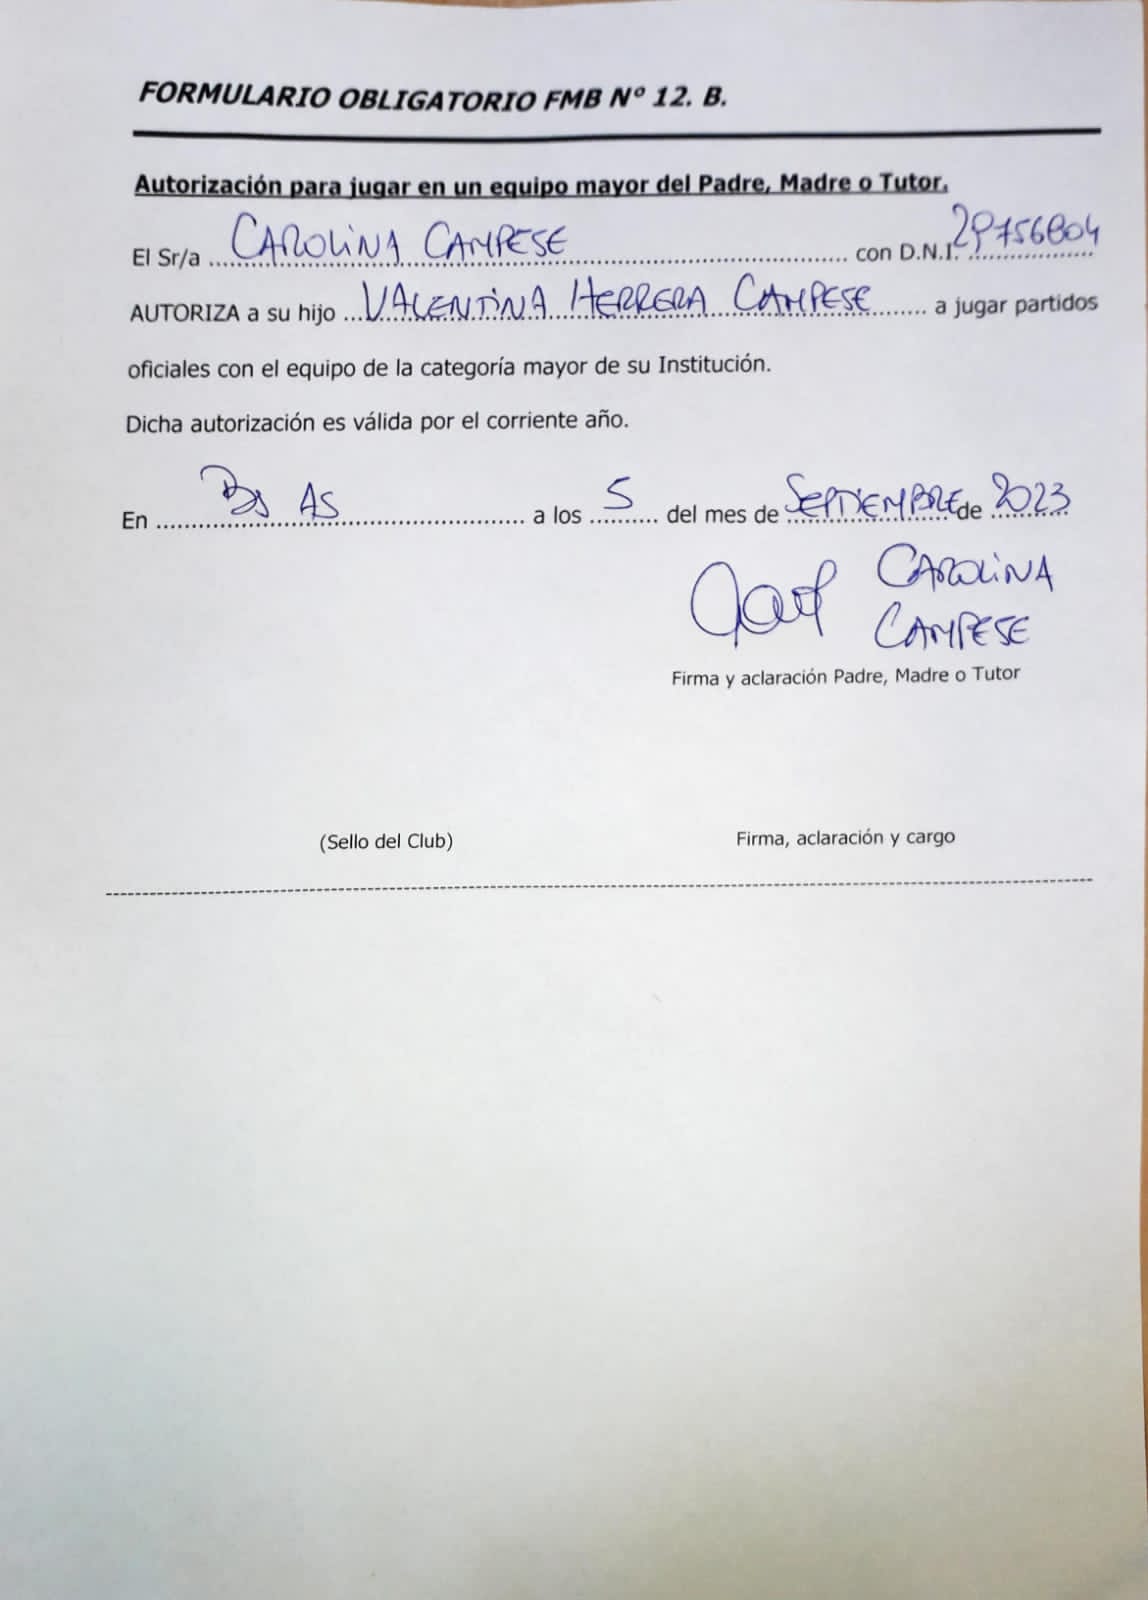 FORMULARIO OBLIGATORIO FMB Nº 12. B.
Autorización para jugar en un equipo mayor del Padre, Madre o Tutor.
El Sr/a CAROLINA CAMPESE con D.N.I. 29756804
AUTORIZA a su hijo VALENTINA HERRERA CAMPESE a jugar partidos
oficiales con el equipo de la categoría mayor de su Institución.
Dicha autorización es válida por el corriente año.
En Bs AS a los 5 del mes de SEPTIEMBRE de 2023
CAROLINA
CAMPESE
Firma y aclaración Padre, Madre o Tutor
(Sello del Club) Firma, aclaración y cargo